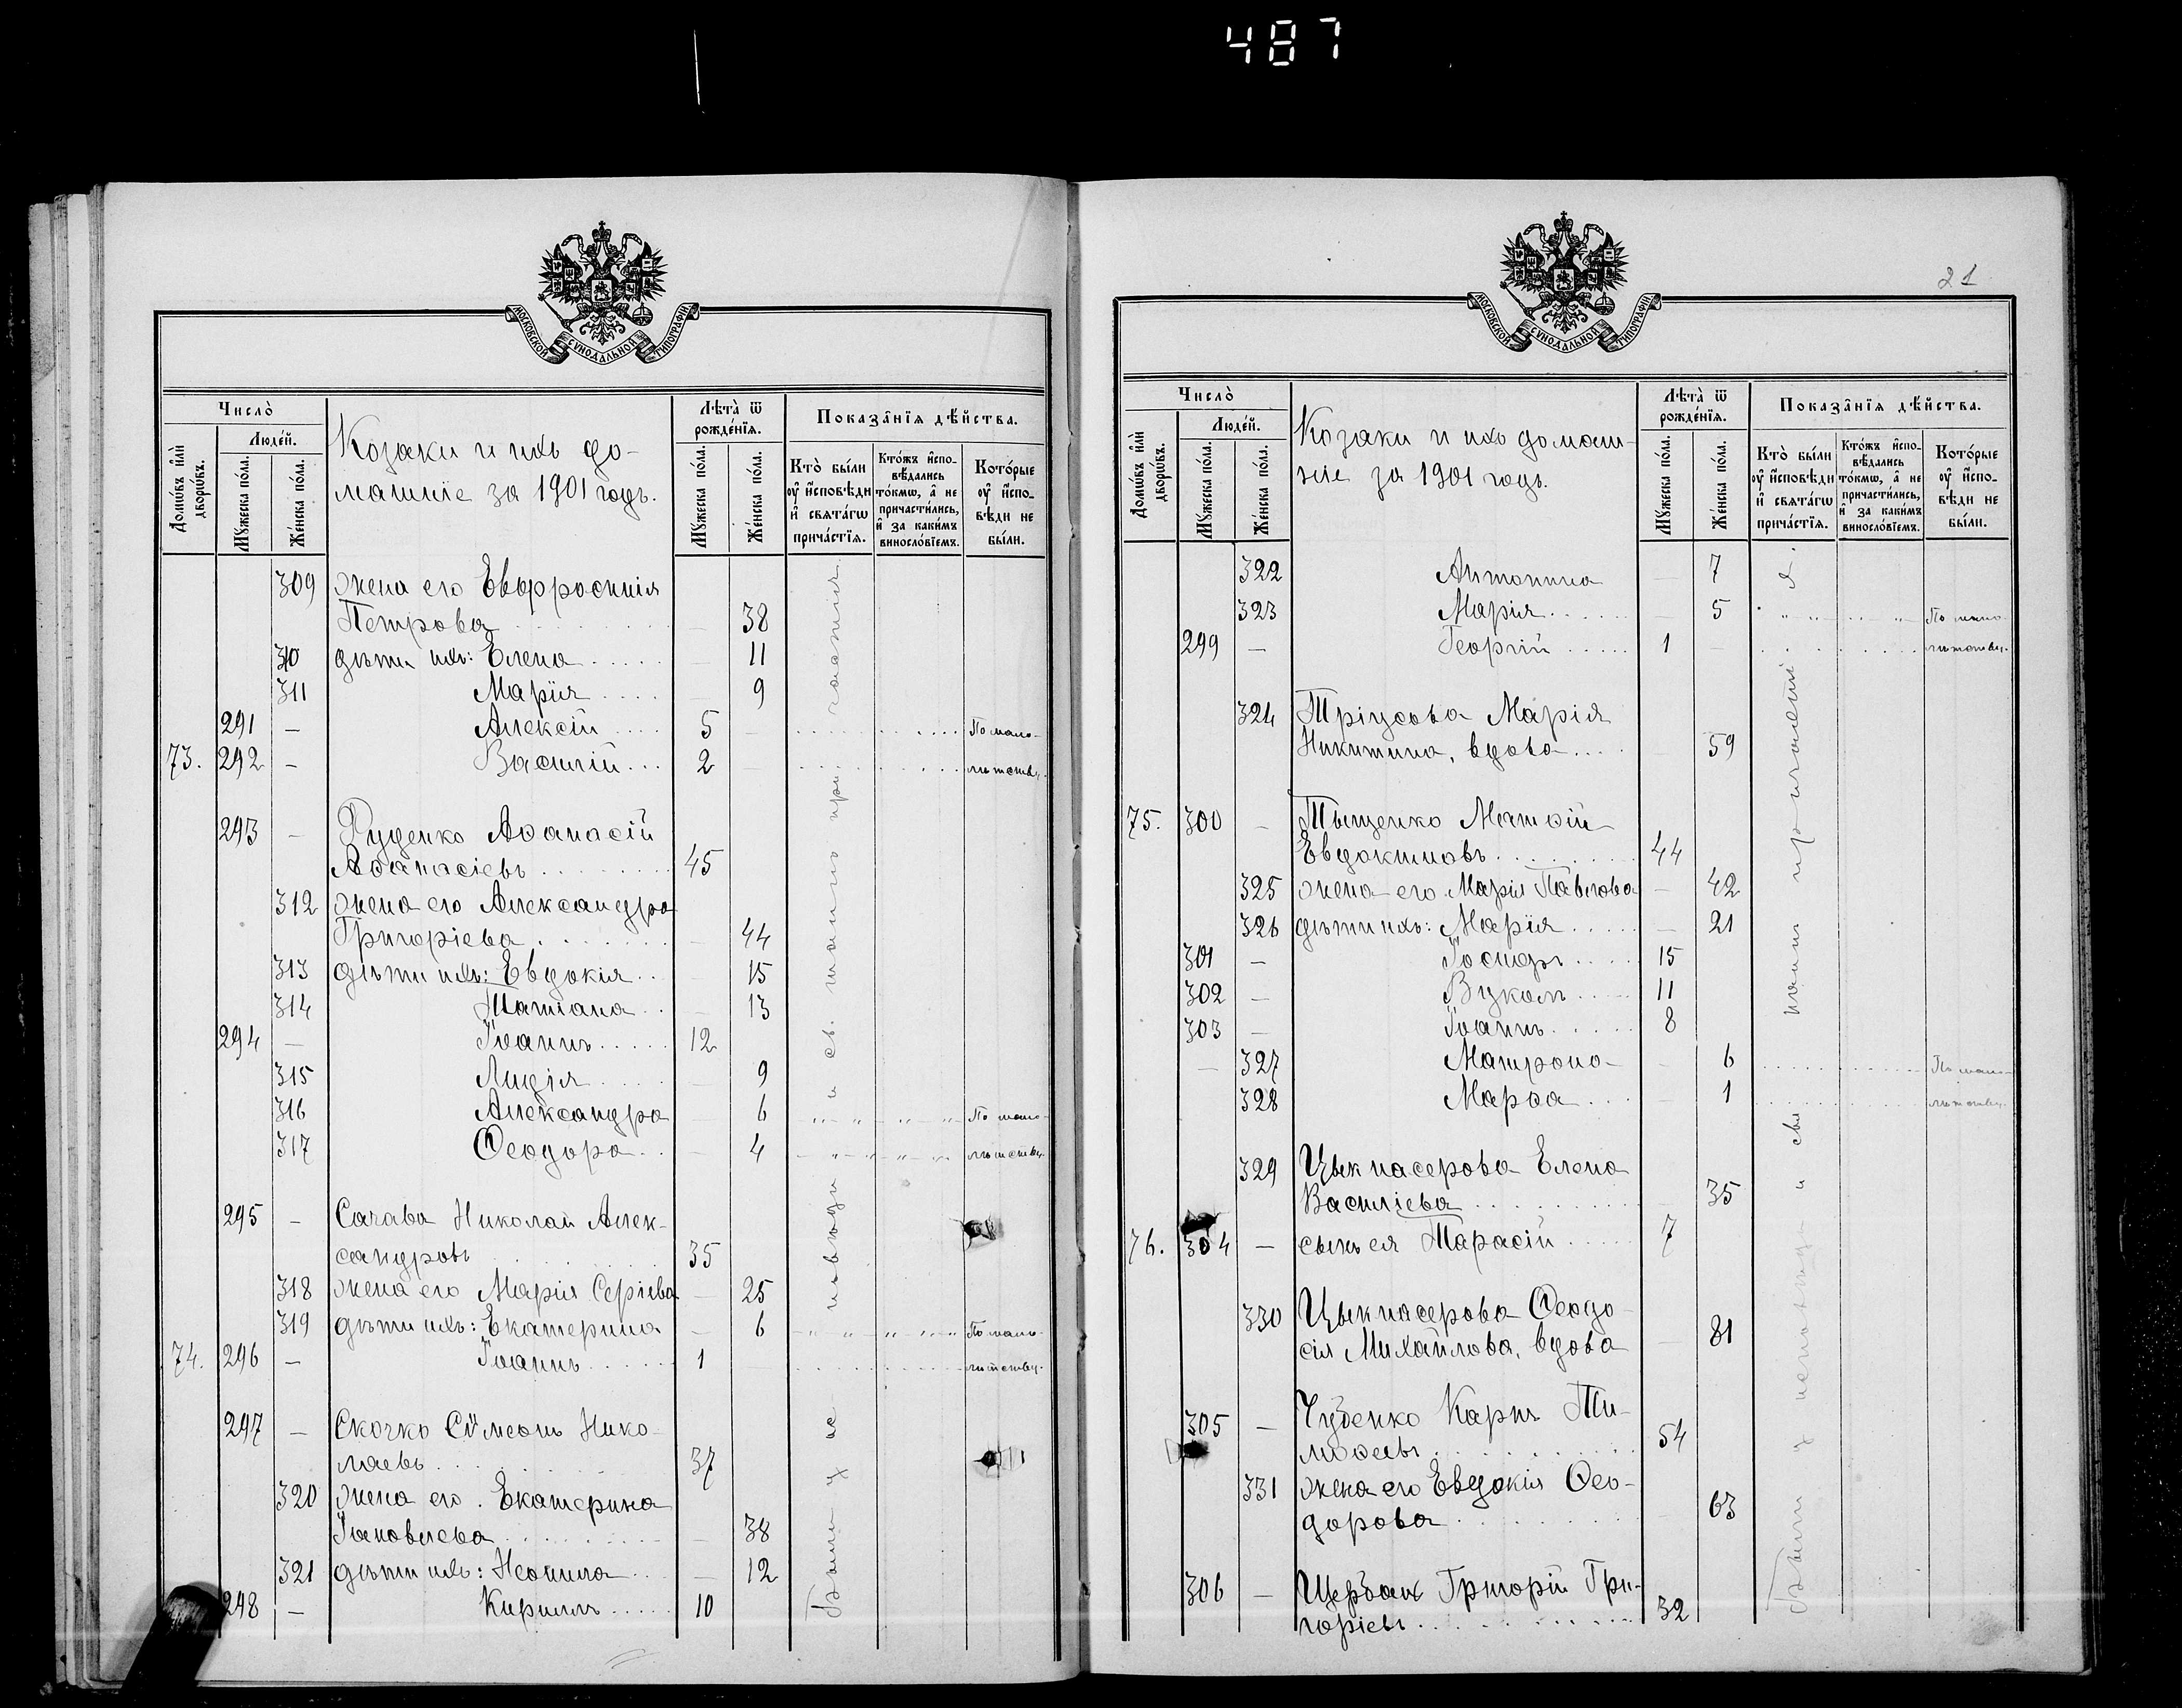 487
МОСКОВСКОЙ СУНОДАЛЬНОЙ ТИПОГРАФІИ.
Число̀
Людей.
Домѡвъ и҆лѝ дворѡвъ.
Мꙋжеска по́ла.
Же́нска по́ла.
Козаки и ихъ до-
машніе за 1901 годъ.
Лѣта̀ ѿ рожде́нїѧ.
Мꙋжеска по́ла.
Же́нска по́ла.
Показа̑нїѧ дѣ́йства.
Кто̀ бы́ли ᲂу҆ и҆сповѣди и҆ свѧта́гѡ прича́стїѧ.
Кто́жъ и҆спо-вѣдались то́кмѡ, а҆ не причасти́лись, и҆ за каки́мъ винослові́емъ.
Кото́рые ᲂу҆ и҆спо-вѣди не бы́ли.
309 жена его Евфросинія
Петрова — 38
310 дѣти ихъ: Елена — 11
311 Марія — 9
291 — Алексій 5 — По мало-
73. 292 — Василій 2 — лѣтству.
293 — Руденко Аѳанасій
Аѳанасіевъ 45
312 жена его Александра
Григоріева — 44
313 дѣти ихъ: Евдокія — 15
314 Татіана — 13
294 — Іоаннъ 12
315 Лидія — 9
316 Александра — 6 По мало-
317 Ѳеодора — 4 лѣтству.
295 — Сачава Николай Алек-
сандровъ 35
318 жена его Марія Сергіева — 25
319 дѣти ихъ: Екатерина — 6 По мало-
74. 296 — Іоаннъ 1 лѣтству.
297 — Скочко Сѵмеонъ Нико-
лаевъ 37
320 жена его Екатерина
Іаковлева — 38
321 дѣти ихъ: Неонила — 12
298 — Кириллъ 10
Были у исповѣди и св. причастія
21
МОСКОВСКОЙ СУНОДАЛЬНОЙ ТИПОГРАФІИ.
Число̀
Людей.
Домѡвъ и҆лѝ дворѡвъ.
Мꙋжеска по́ла.
Же́нска по́ла.
Козаки и ихъ домаш-
ніе за 1901 годъ.
Лѣта̀ ѿ рожде́нїѧ.
Мꙋжеска по́ла.
Же́нска по́ла.
Показа̑нїѧ дѣ́йства.
Кто̀ бы́ли ᲂу҆ и҆сповѣди и҆ свѧта́гѡ прича́стїѧ.
Кто́жъ и҆спо-вѣдались то́кмѡ, а҆ не причасти́лись, и҆ за каки́мъ винослові́емъ.
Кото́рые ᲂу҆ и҆спо-вѣди не бы́ли.
322 Антонина — 7
323 Марія — 5 По мало-
299 — Георгій 1 — лѣтству.
324 Тріусова Марія
Никитина, вдова — 59
75. 300 — Тыщенко Матѳій
Евдокимовъ 44
325 жена его Марія Павлова — 42
326 дѣти ихъ: Марія — 21
301 — Іосифъ 15
302 — Вуколъ 11
303 — Іоаннъ 8
— 327 Матрона — 6 По мало-
328 Марѳа — 1 лѣтству.
329 Цыкпасерова Елена
Василіева — 35
76. 304 — сынъ ея Тарасій 7
330 Цыкпасерова Ѳеодо-
сія Михайлова, вдова — 81
305 — Чубенко Карпъ Ти-
моѳеевъ 54
331 жена его Евдокія Ѳео-
дорова 63
306 — Щербакъ Григорій Гри-
горіевъ 32